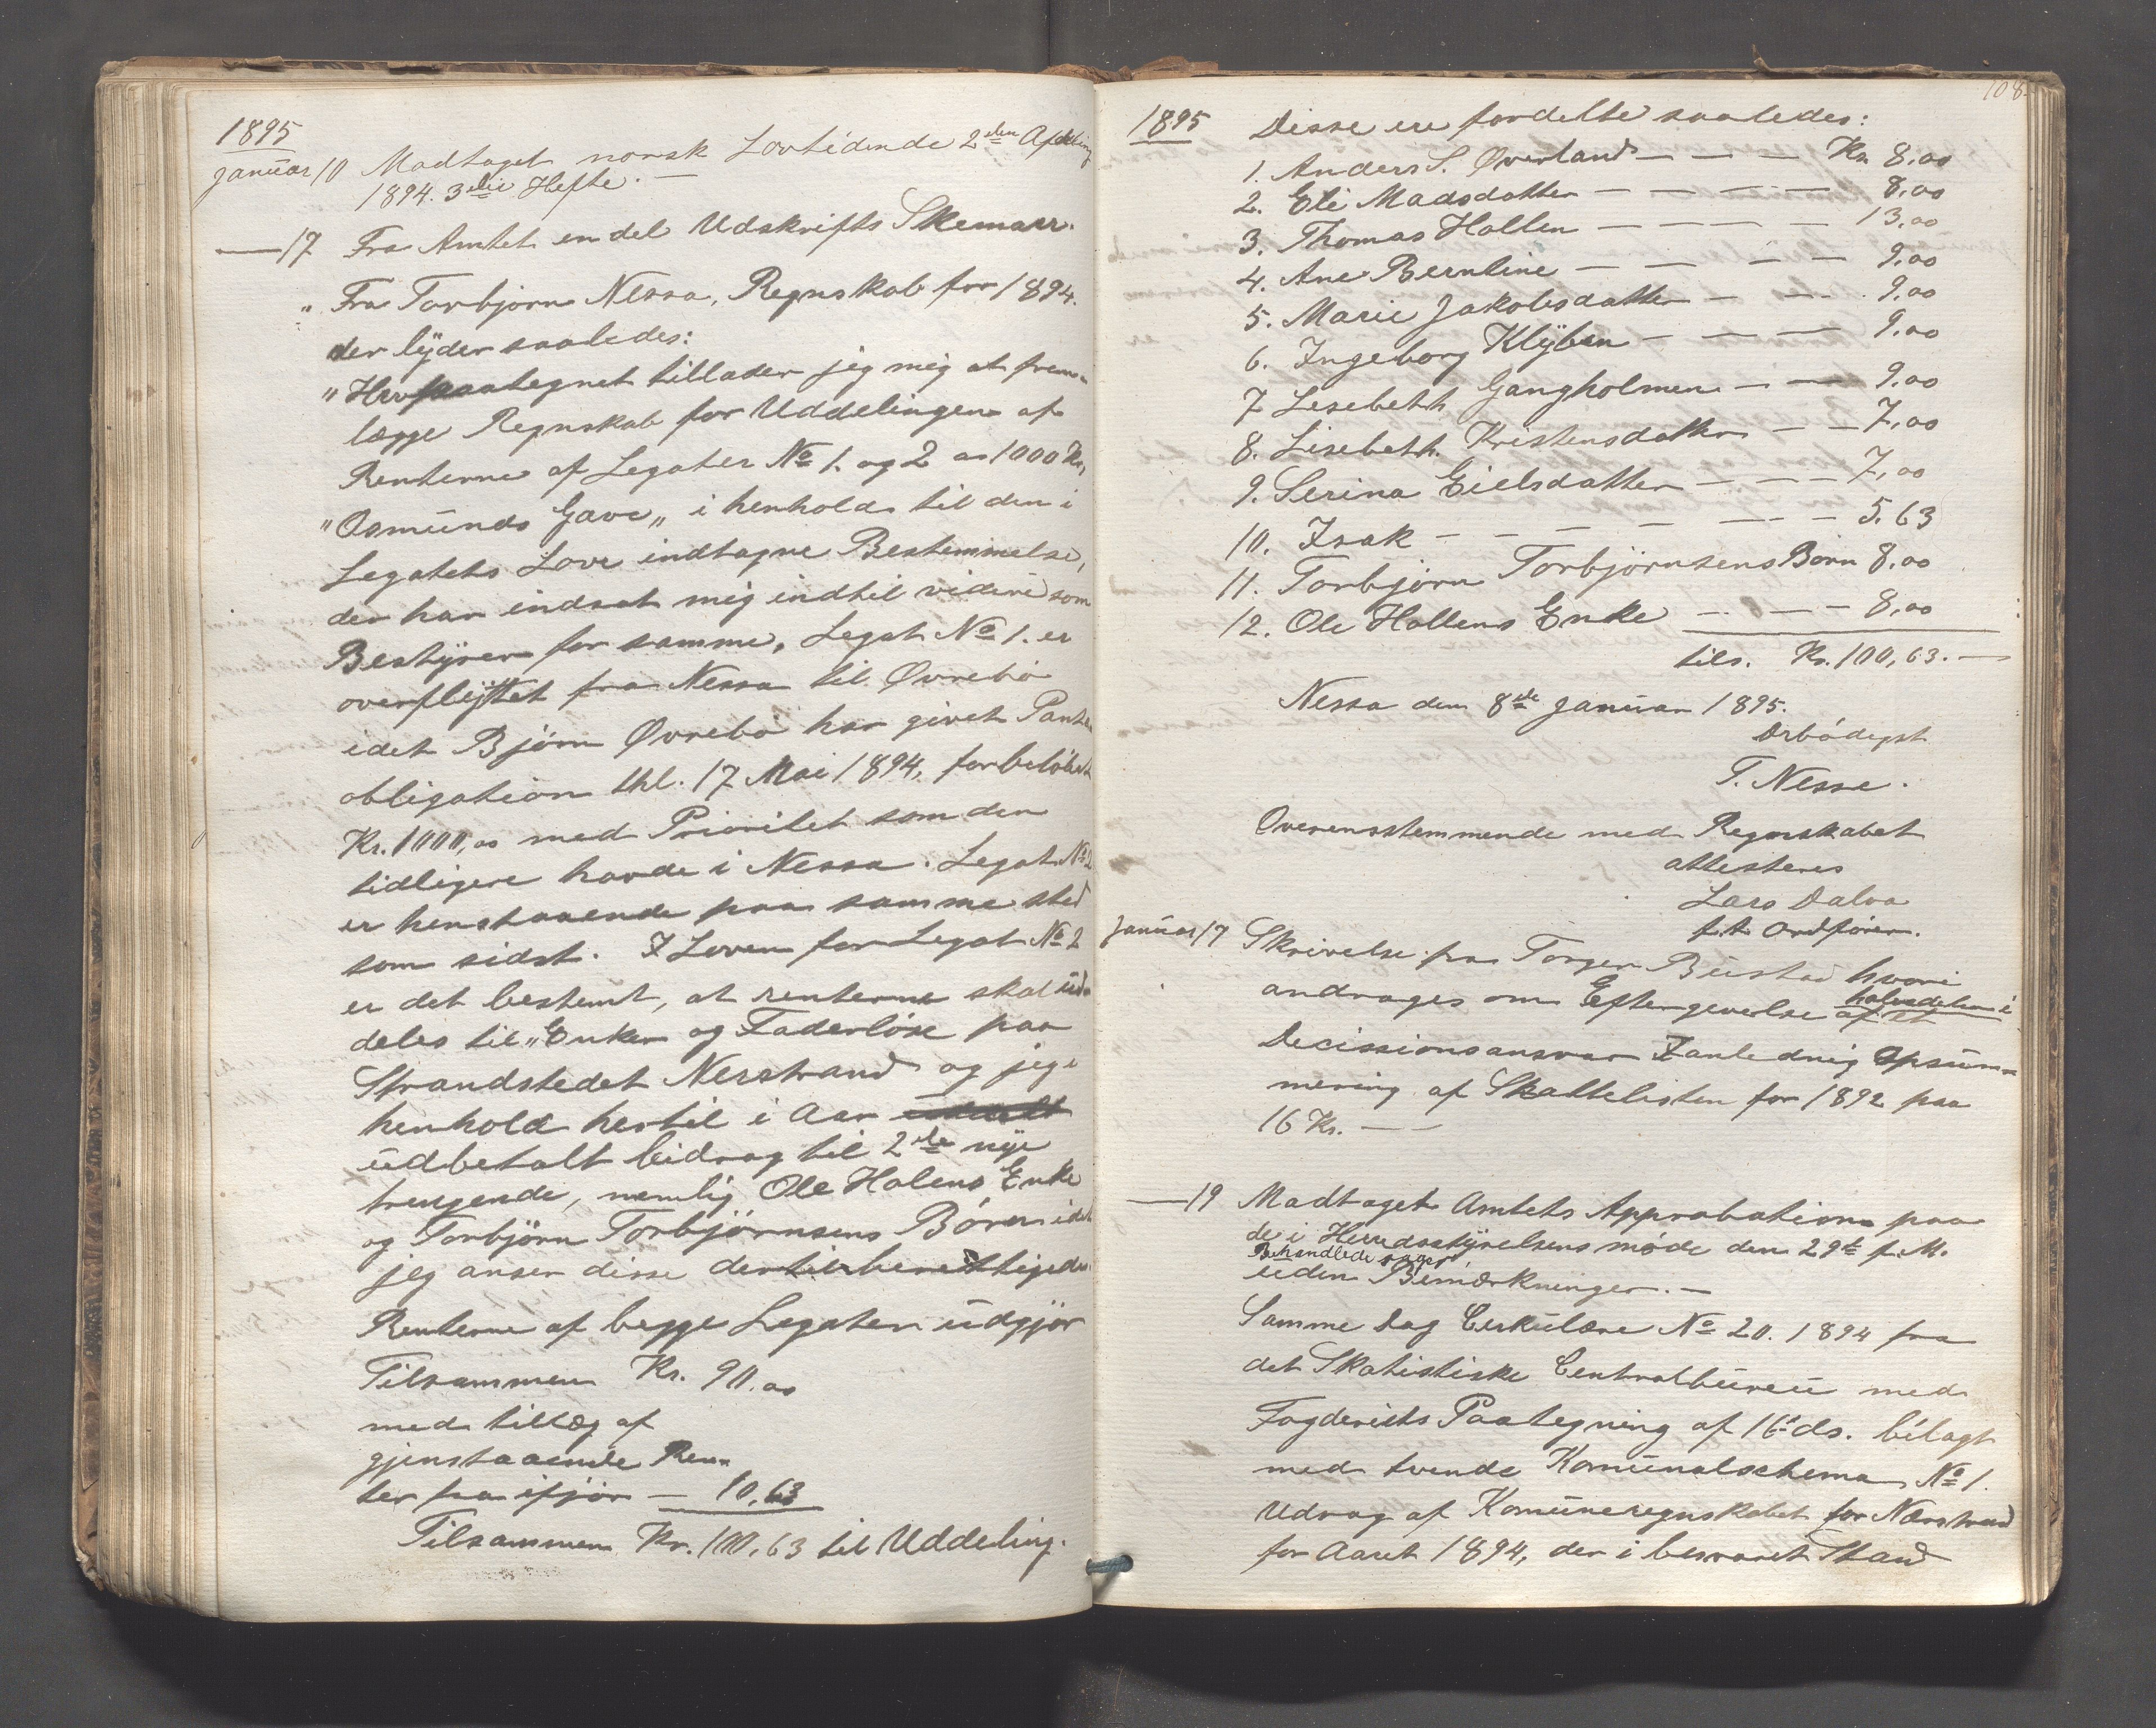 1895
Januar 10 Modtaget norsk Lovtidende 2den Afdeling
1894. 3die Hefte. —
— 17 Fra Amtet en del Udskrifts Skemaer.
" Fra Torbjørn Nessa, Regnskab for 1894.
der lyder saaledes:
"Hervpaategnet tillader jeg mig at frem-
lægge Regnskab for Uddelingen af
Renterne af Legater No 1. og 2 a 1000 Kr,
"Osmunds Gave„ i henhold til den i
Legatets Love indtagne Bestemmelse,
der har indsat mig indtil videre som
Bestyrer for samme, Legat No 1. er
overflyttet fra Nessa til Øvrebø
idet Bjørn Øvrebø har givet Pante
obligation thl. 17 Mai 1894, for beløbet
Kr. 1000,00 med Prioritet som den
tidligere havde i Nessa. Legat No 2
er henstaaende paa samme sted
som sidst. I Loven for Legat No 2
er det bestemt, at renterne skal ud-
deles til „Enker og Faderløse paa
Strandstedet Nerstrand og jeg i
henhold hertil i Aar uddelt
udbetalt bidrag til 2de nye
trengende, nemlig Ole Holens Enke
og Torbjørn Torbjørnsens Børn idet
jeg anser disse dertil berettigede.
Renterne af begge Legater udgjør
Tilsammen Kr. 90.00
med tillæg af
gjenstaaende Ren-
ter fra ifjor — 10,63
Tilsammen Kr. 100,63 til Uddeling.
108.
1895 Disse ere fordelte saaledes:
1. Anders S. Øverland — — — Kr. 8,00
2. Eli Madsdatter — — — — 8,00
3. Thomas Hollen — — — — 13,00
4. Ane Berntine — — — — 9,00
5. Marie Jakobsdatter — — — 9,00
6. Ingeborg Klyben — — — 9,00
7 Lesebeth Gangholmen — — 9,00
8. Lisebeth Kristensdatter — — 7,00
9. Serina Eielsdatter — — — 7,00
10. Isak — — — — — 5.63
11. Torbjørn Torbjørnsens Børn 8,00
12. Ole Hollens Enke — — — 8,00
tils. Kr. 100,63. —
Nessa den 8de Januar 1895.
Ærbødigst
T. Nesse.
Overensstemmende med Regnskabet
attesteres
Lars Dalva
f.t. Ordfører.
Januar 17 Skrivelse fra Torger Bustad hvori
andrages om Eftergivelse af halvdelen i et
Decissionsansvar I anledning Opsum-
mering af Skattelisten for 1892 paa
16 Kr. —
— 19 Modtaget Amtets Approbation paa
de i Herredsstyrelsens møde den 29de f. M.
Behandlede sager
uden Bemærkninger. —
Samme Dag Cirkulære No 20. 1894 fra
det Statistiske Centralbureu med
Fogderiets Paategning af 16de ds. bilagt
med tvende Komunalschema No 1.
Udrag af Komuneregnskabet for Nærstrand
for Aaret 1894, der i besvaret Stand